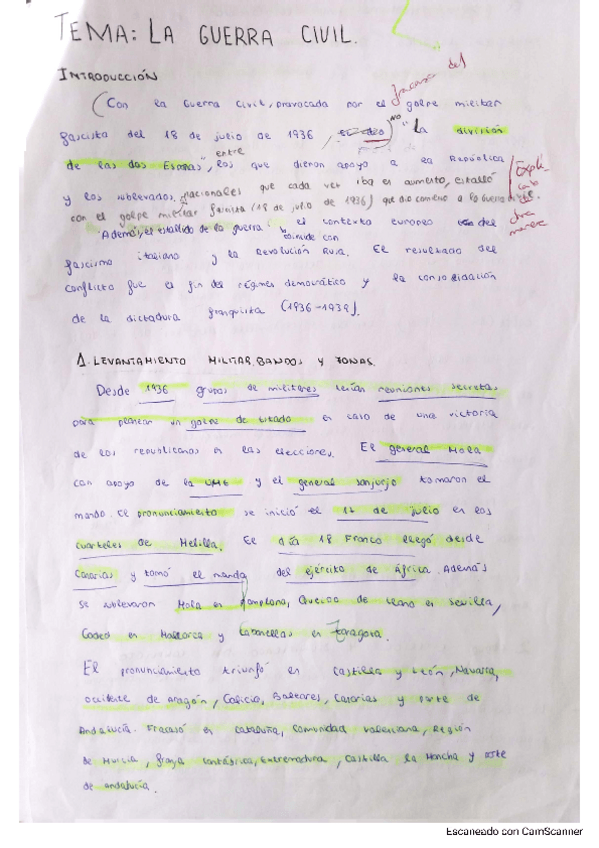 TEMA: LA GUERRA CIVIL.
INTRODUCCIÓN
fracaso del
(Con la Guerra Civil, provocada por el golpe militar
fascista del 18 de julio de 1936, no "la división
de las dos Españas" entre los que dieron apoyo a la República
y los sublevados nacionales que cada vez iba en aumento, estalló
con el golpe militar fascista (18 de julio de 1936) que dio comienzo a la Guerra
Explicarlo
otra
manera
Además, el estallido de la guerra coincide con el contexto europeo del
fascismo italiano y la Revolución Rusa. El resultado del
conflicto fue el fin del régimen democrático y la consolidación
de la dictadura franquista (1936-1939).
1. LEVANTAMIENTO MILITAR, BANDOS Y ZONAS.
Desde 1936 grupos de militares tenían reuniones secretas
para planear un golpe de estado en caso de una victoria
de los republicanos en las elecciones. El general Mola
con apoyo de la UME y el general Sanjurjo tomaron el
mando. El pronunciamiento se inició el 17 de julio en los
cuarteles de Melilla. El día 18 Franco llegó desde
Canarias y tomó el mando del ejército de áfrica. Además
se sublevaron Mola en Pamplona, Queipo de Llano en Sevilla,
Goded en Mallorca y Cabanellas en Zaragoza.
El pronunciamiento triunfó en Castilla y León, Navarra,
occidente de Aragón, Galicia, Baleares, Canarias y parte de
Andalucía. Fracasó en Cataluña, Comunidad Valenciana, Región
de Murcia, franja cantábrica, Extremadura, Castilla la Mancha y parte
de andalucía.
Escaneado con CamScanner